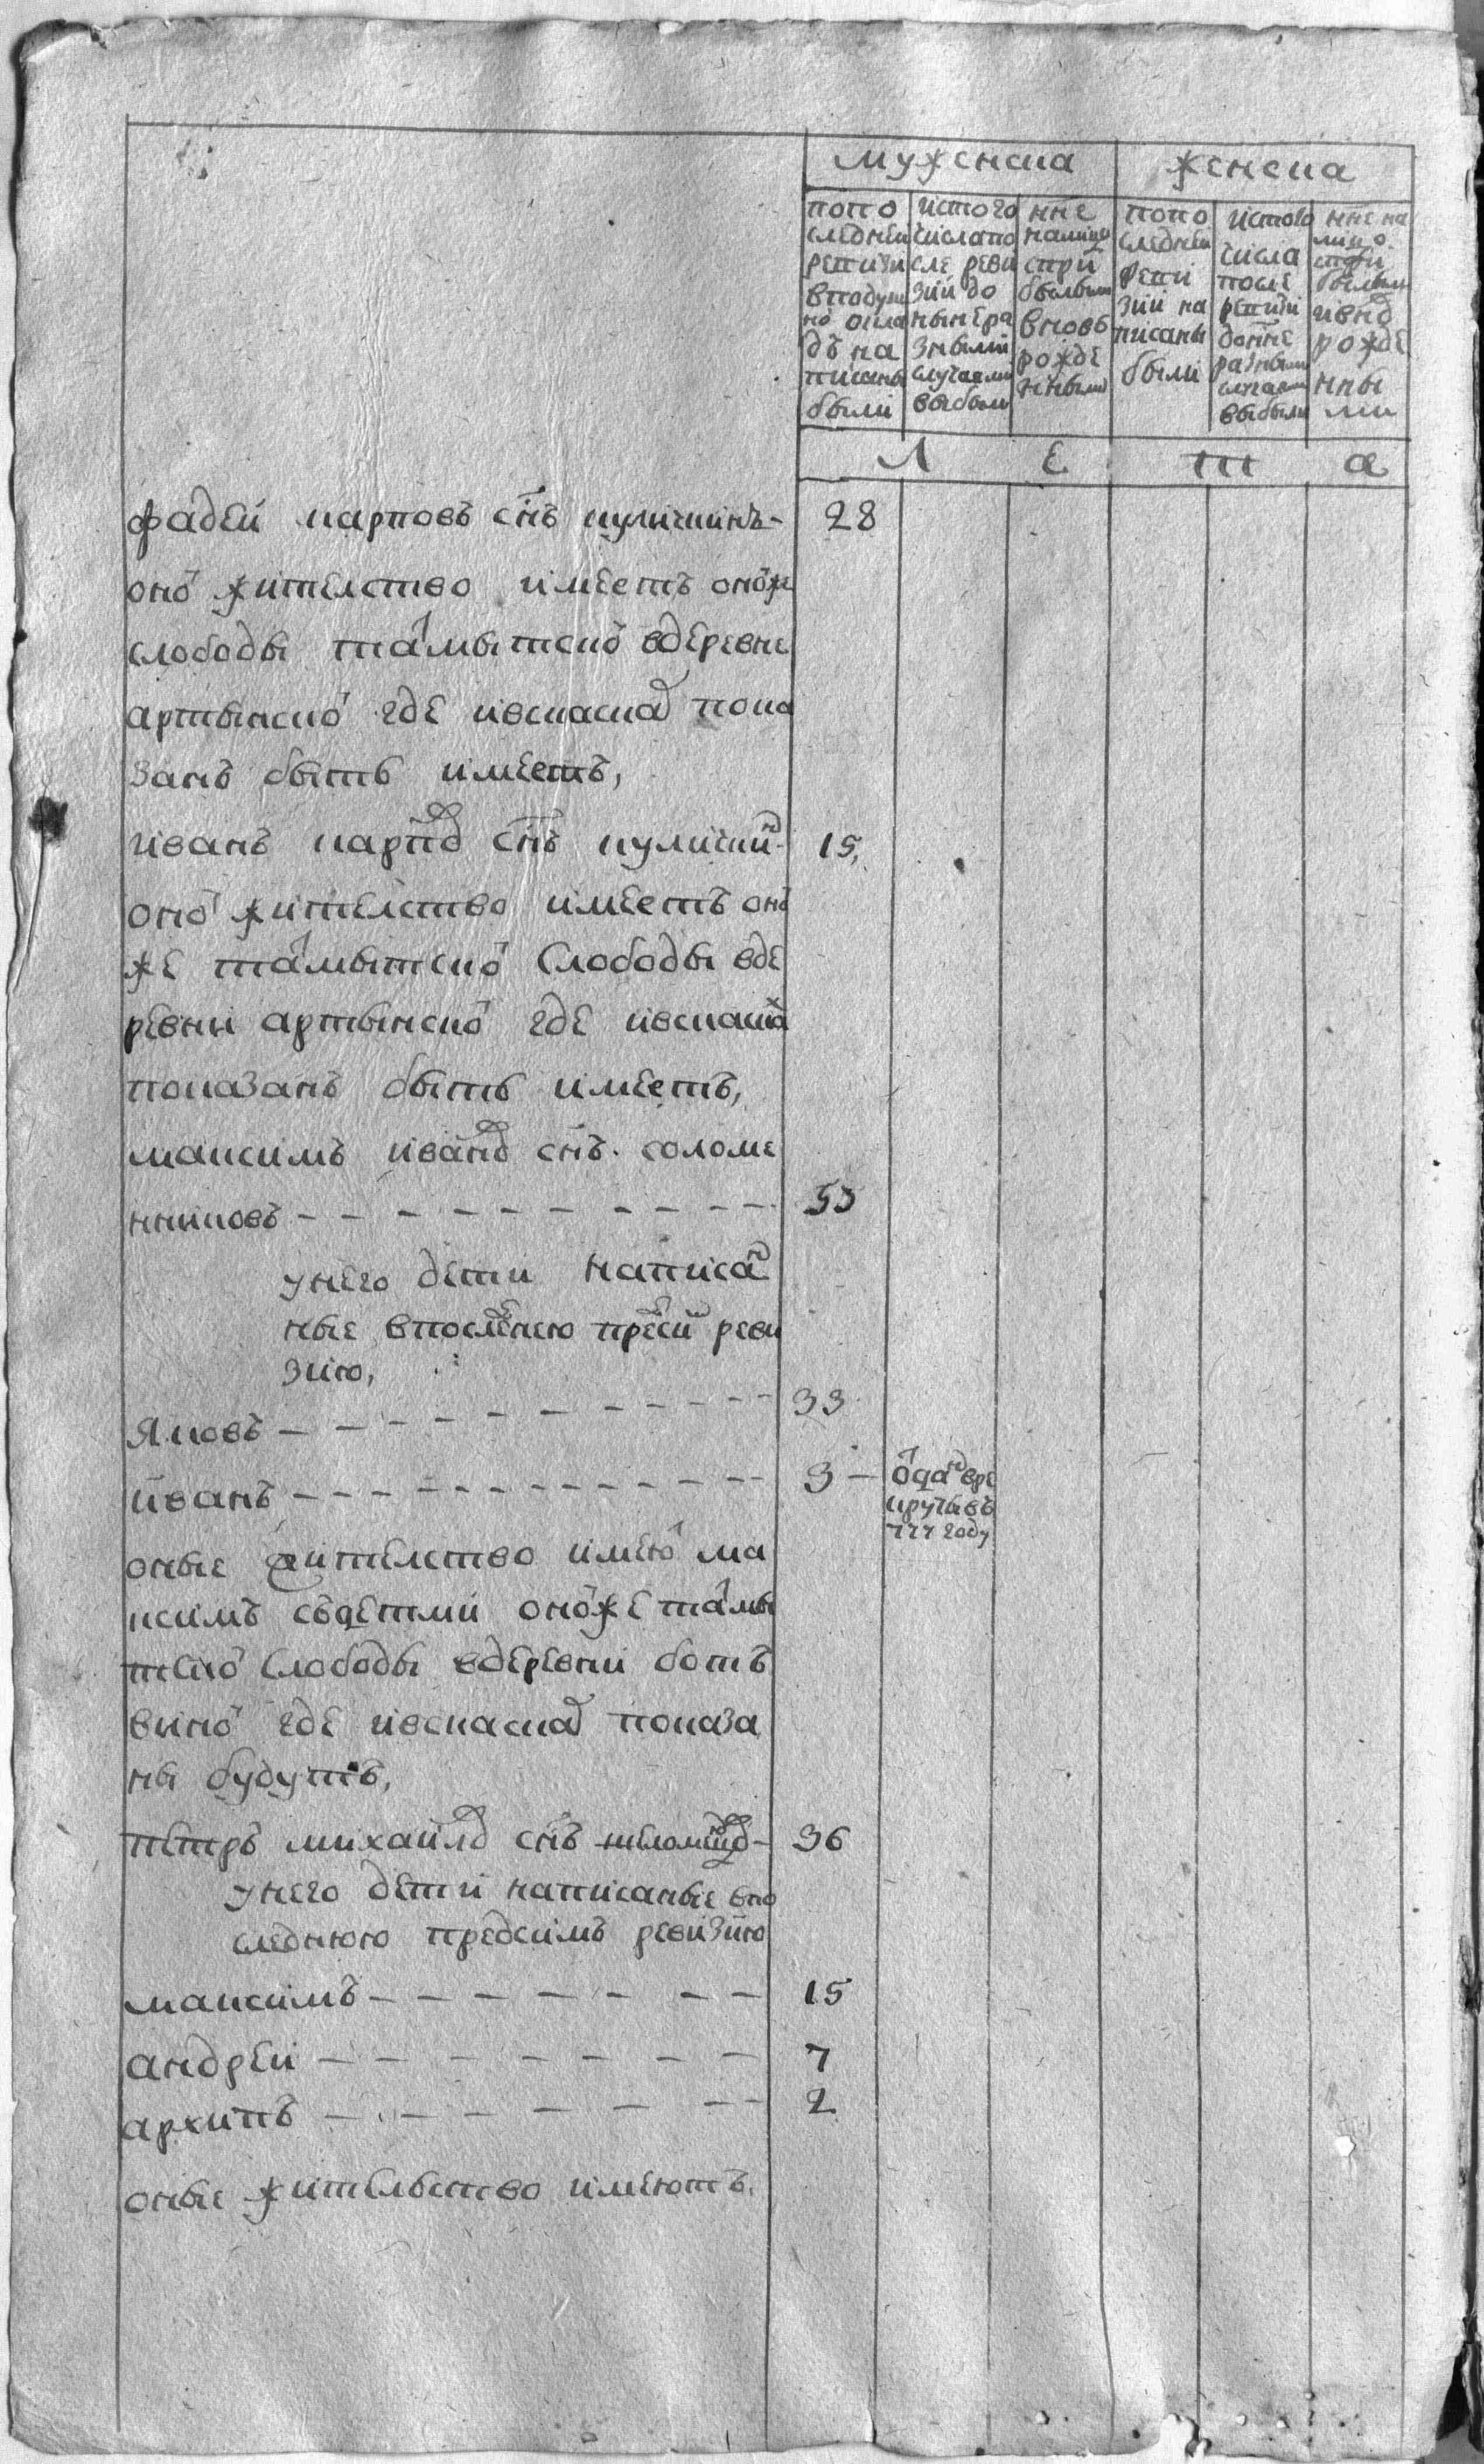 мужеска
женска
попо
следней
ревизи
вподуш
но окла
дъ на
писаны
были
истого
числапо
сле реви
зии до
ныне ра
зными
случаями
выбыли
нне
налицо
спри
былыми
вновь
рожде
нными
попо
следней
реви
зии на
писаны
были
истого
числа
после
ревизи
донне
разными
случаями
выбыли
нне на
лицо
спри
былыми
ивнов
рожде
нны
ми
Л Е Т А
фадей карповъ снъ куличкинъ - 28
оно жителство имеетъ оноже
слободы тамытско вдеревне
артынско где ивсказка пока
занъ быть имеетъ,
иванъ карпов снъ куличкин 15,
оно жителство имеетъ оно
же тамытско слободы вде
ревни артынско где ивсказка
показанъ быть имеетъ,
максимъ иванов снъ соломе
нниковъ - - - - - - - - - 55
унего дети написан
ные впоследнею предсим реви
зию,
яковъ - - - - - - - - - - 33
иванъ - - - - - - - - - - 3 - одан вре
круты въ
777 году
оные жителство имею ма
ксимъ сьдетми оноже тамы
тско слободы вдеревни боть
вино где ивсказка показа
ны будутъ,
петръ михайлов снъ - 36
унего дети написаные впо
следнюю предсимъ ревизию
максимъ - - - - - - - 15
андрей - - - - - - - 7
архипъ - - - - - - - 2
оные жительство имеютъ.